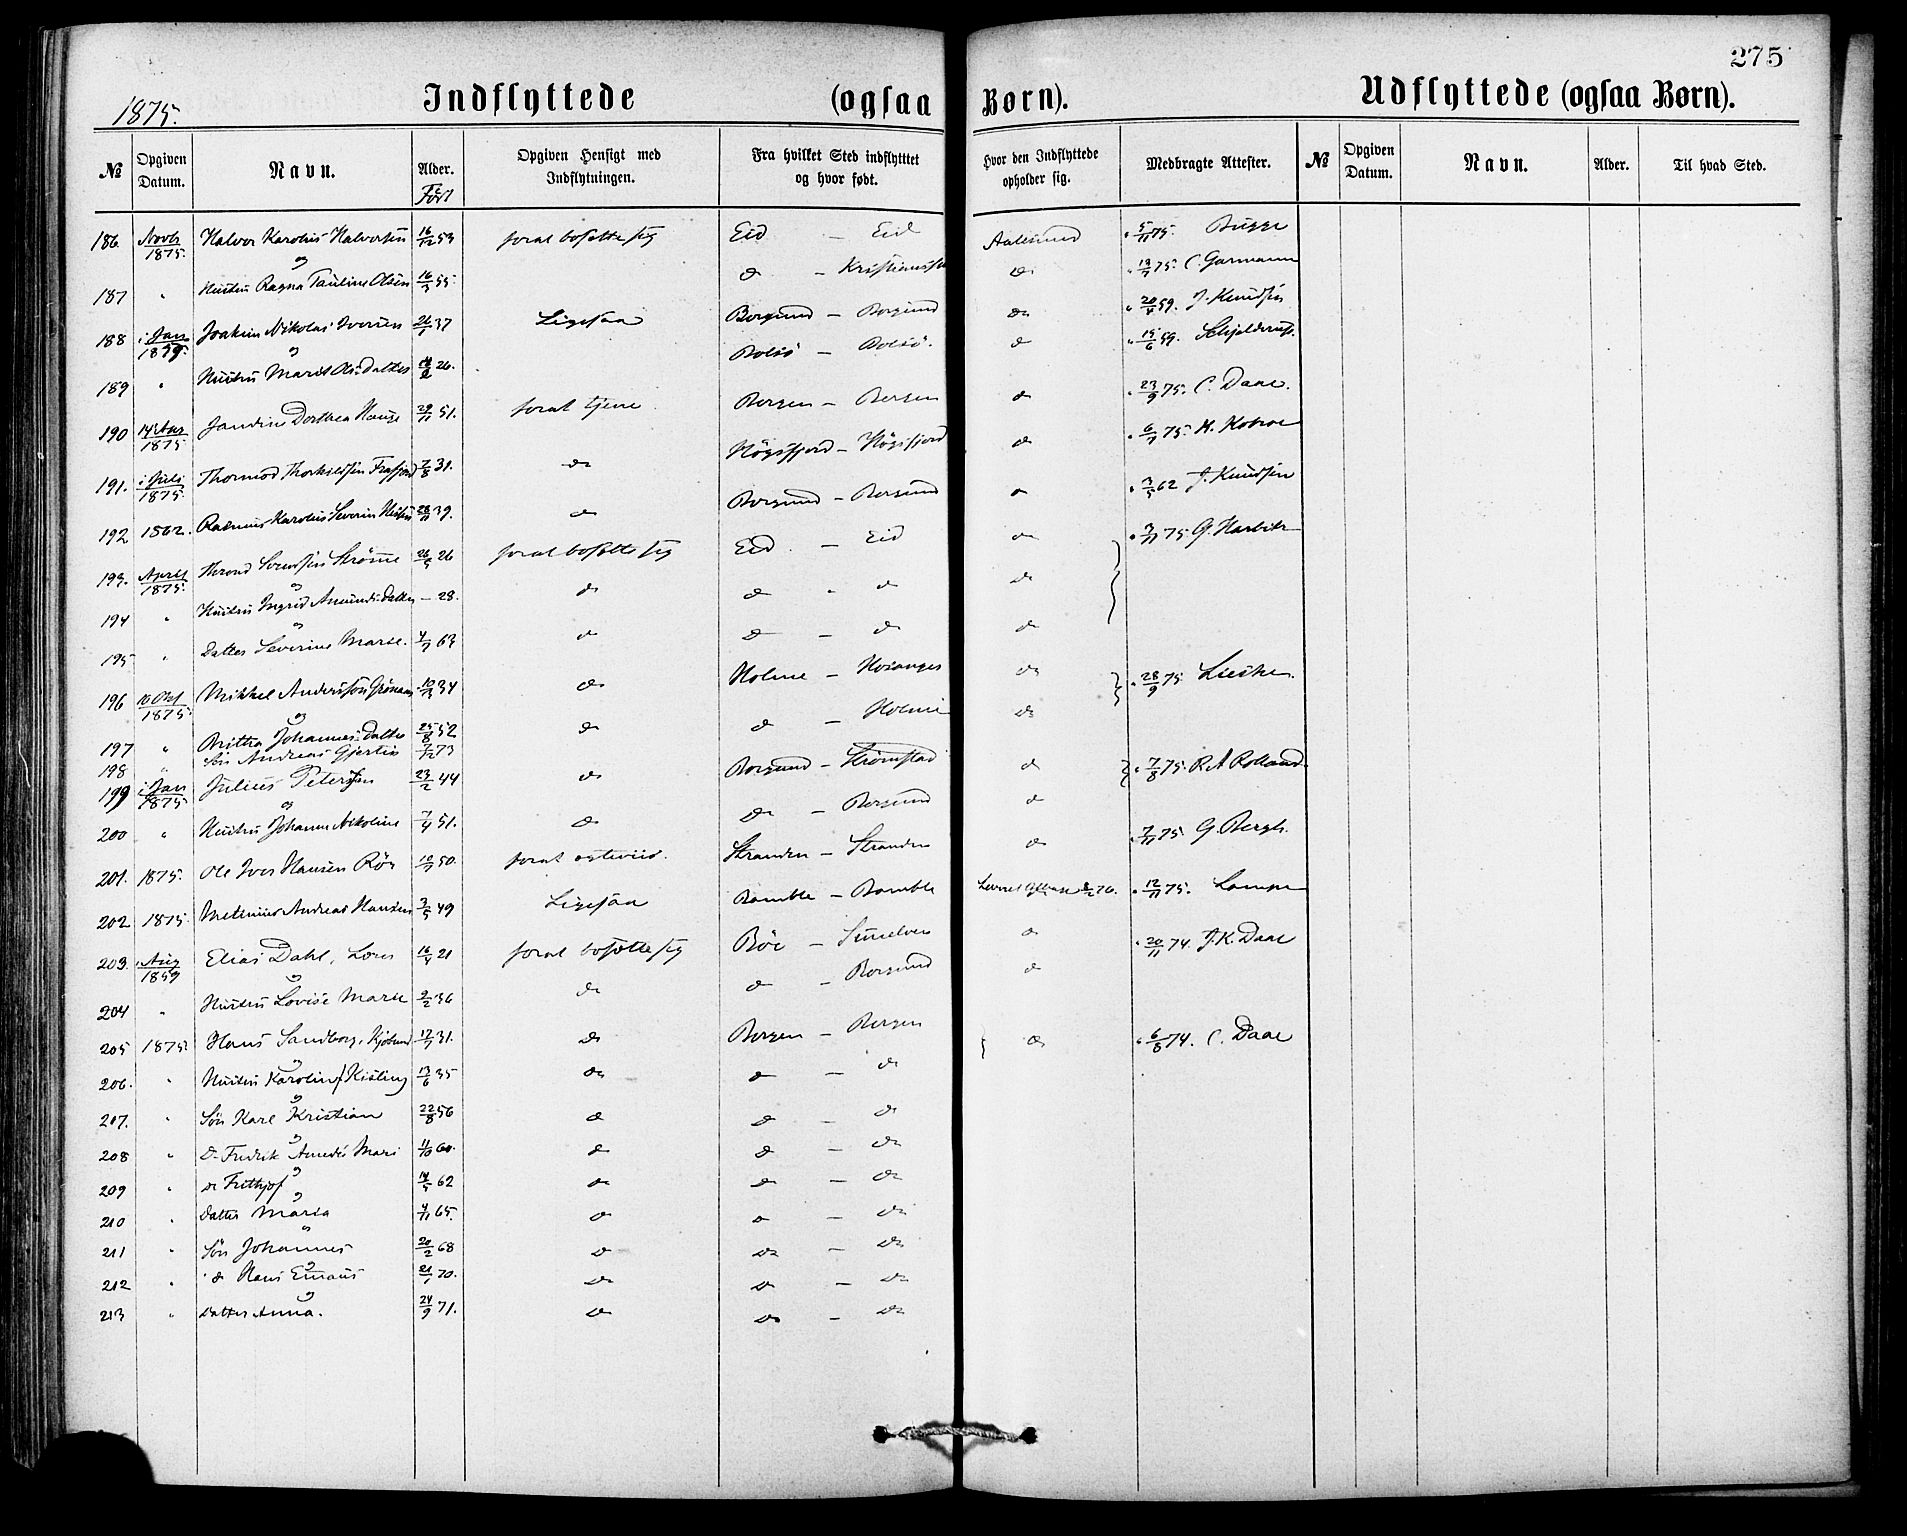 275
1875.
Indflyttede (ogsaa Børn).
Udflyttede (ogsaa Børn).
№ Opgiven Datum. Navn. Alder. Født Opgiven Hensigt med Indflytningen. Fra hvilket Sted indflytttet og hvor født. Hvor den Indflyttede opholder sig. Medbragte Attester. № Opgiven Datum. Navn. Alder. Til hvad Sted.
186 Novb 1875. Halvor Karolius Halvorsen 16/12 53 forat bosætte sig Eid - Eid Aalesund " 5/11 75. Bugge
og
187 " Hustru Ragna Pauline Olsen 16/3 55. do - Kristianss do " 13/7 75. C. Garmann
188 i Jan 1859. Joakim Nikolai Iversen 26/1 37 Ligesaa Borgund - Borgund do " 20/4 59. J. Knudsen
og
189 " Hustru Marit Ols Datter 26. Bolsö - Bolsö. do " 15/6 59. Schjelderup.
190 14 1875. Jandine Dorthea Hauge 29/11 51. forat tjene Bergen - Bergen do " 23/9 75. C. Daae.
191. i Juli 1875. Thormod Thorkildsen Frafjord 7/8 31. do Högsfjord - Högsfjord do " 6/7 75.
192 1862. Rasmus Karolius Severin 28/11 39. do Borgund - Borgund do " 3/5 62 J. Knudsen
193. April 1875. Thrond Strömme 26/5 26 forat bosætte sig Eid - Eid do " 3/11 75 G.
og
194 " Hustru Ingrid Amunds Datter - 28. do do " do do
og
195 " Datter Severine Marie. 4/7 63 do do - do do
196 10 Okt 1875. Mikkel Anderssön 10/2 34 do Holme - Hosanger do " 28/9 75.
og
197 " Brittha Johannes Datter 25/8 52 do do - Holme do
198 " Sön Andreas Gjertin 7/12 73
199 i Jan 1875 Julius Petersen 23/2 44 do Borgund - Strömstad do " 7/8 75. R. A Rolland.
og
200 " Hustru Johanne Nikoline 7/4 51. do do - Borgund do
201. 1875. Ole Iver Hansen Rör 10/7 50. forat Stranden - Stranden do " 7/11 75. G. Bergh.
202 1875. Andreas Hansen 3/5 49 Ligesaa Bamble - Bamble 76. " 12/11 75.
203. Aug 1859 Elias Dahl, 16/4 21 forat bosætte sig Böe - Sunelven do " 20/11 74. J. K. Daae
og
204 " Hustru Lovise Marie 9/2 36 do do - Borgund do
205 1875. Hans Sandborg, 17/7 31. do Bergen - Bergen do " 6/8 74. C. Daae
og
206. " Hustru Karoline f Kisling 13/6 35 do do - do
og
207. " Sön Karl Kristian 22/8 56 do do - do
og
208 " do Fredrik Amedé Mari 11/10 60. do do - do
og
209 " do Frithjof 14/5 62 do do - do
og
210 " Datter Maria 4/11 65. do do - do
og
211 " Sön Johannes 20/2 68 do do - do
og
212 " do Hans Emaus 21/1 70. do do - do
og
213 " Datter Anna. 24/9 71. do do - do